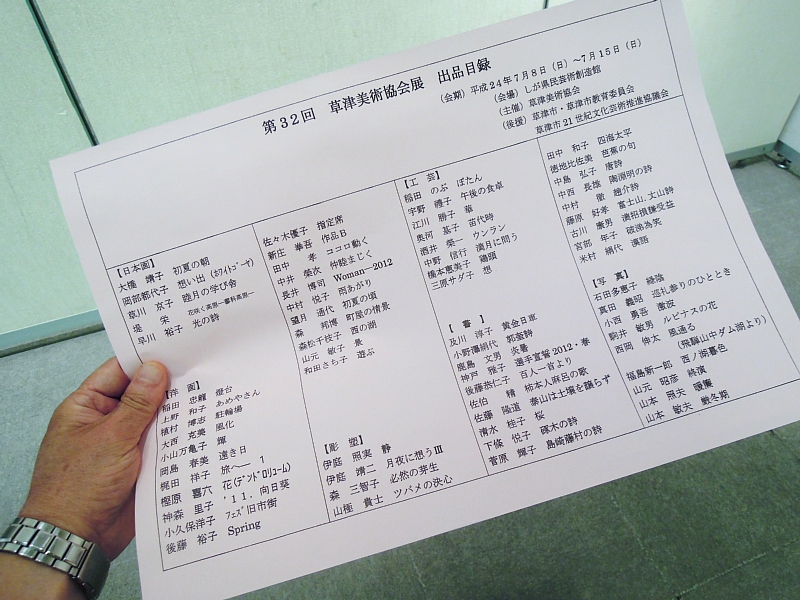 第32回 草津美術協会展 出品目録
(会期) 平成24年7月8日(日)～7月15日(日)
(会場) しが県民芸術創造館
(主催) 草津美術協会
(後援) 草津市・草津市教育委員会
草津市21世紀文化芸術推進協議会
【日本画】
大橋 靖子 初夏の朝
岡部都代子 想い出(ホワイトゴーヤ)
草川 京子 睦月の学び舎
堤 栄 花咲く高原ー蓼科高原ー
早川 裕子 光の詩
【洋 画】
稲田 忠龍 燈台
上野 和子 あめやさん
植村 博志 駐輪場
大西 克美 風化
小山万亀子 輝
岡島 春美 遠き日
梶田 祥子 旅へ― 1
樫原 喜六 花(デンドロリューム)
神森 里子 '11.向日葵
小久保洋子 フェズ旧市街
後藤 裕子 Spring
佐々木優子 指定席
新庄 拳吾 作品B
田中 孝 ココロ動く
中井 榮次 仲睦まじく
長井 博司 Woman―2012
中村 悦子 雨あがり
望月 通代 初夏の頃
森 邦博 町屋の情景
森松千枝子 西の湖
山元 敏子 景
和田さち子 遊ぶ
【彫 塑】
伊庭 照実 静
伊庭 靖二 月夜に想うⅢ
森 三智子 必然の芽生
山極 貴士 ツバメの決心
【工 芸】
稲田 のぶ ぼたん
宇野 禮子 午後の食卓
江川 勝子 華
奥河 基子 苗代時
酒井 榮一 ウンラン
中野 信行 満月に問う
橋本恵美子 鶴頭
三原サダ子 想
【 書 】
及川 淳子 黄金日車
小野澤絹代 郭釜詩
鹿島 文男 炎暑
神戸 雅子 選手宣誓2012・春
後藤恭仁子 百人一首より
佐伯 精 柿本人麻呂の歌
佐藤 陽道 泰山は土壌を譲らず
清水 桂子 桜
下條 悦子 啄木の詩
菅原 輝子 島崎藤村の詩
田中 和子 四海太平
徳地比佐美 芭蕉の句
中島 弘子 唐詩
中西 長雄 陶淵明の詩
中村 徹 趙介詩
藤原 好孝 富士山.丈山詩
古川 廣男 満招損謙受益
宮部 年子 破涕為笑
米村 絹代 漢語
【写 真】
石田多恵子 緑陰
真田 義昭 巡礼参りのひととき
小西 勇吾 激波
駒井 敏男 ルピナスの花
西岡 伸太 風通る
(飛騨山中ダム湖より)
福島新一郎 西ノ湖暮色
山元 昭彦 終演
山本 照夫 暖簾
山本 敏夫 厳冬期